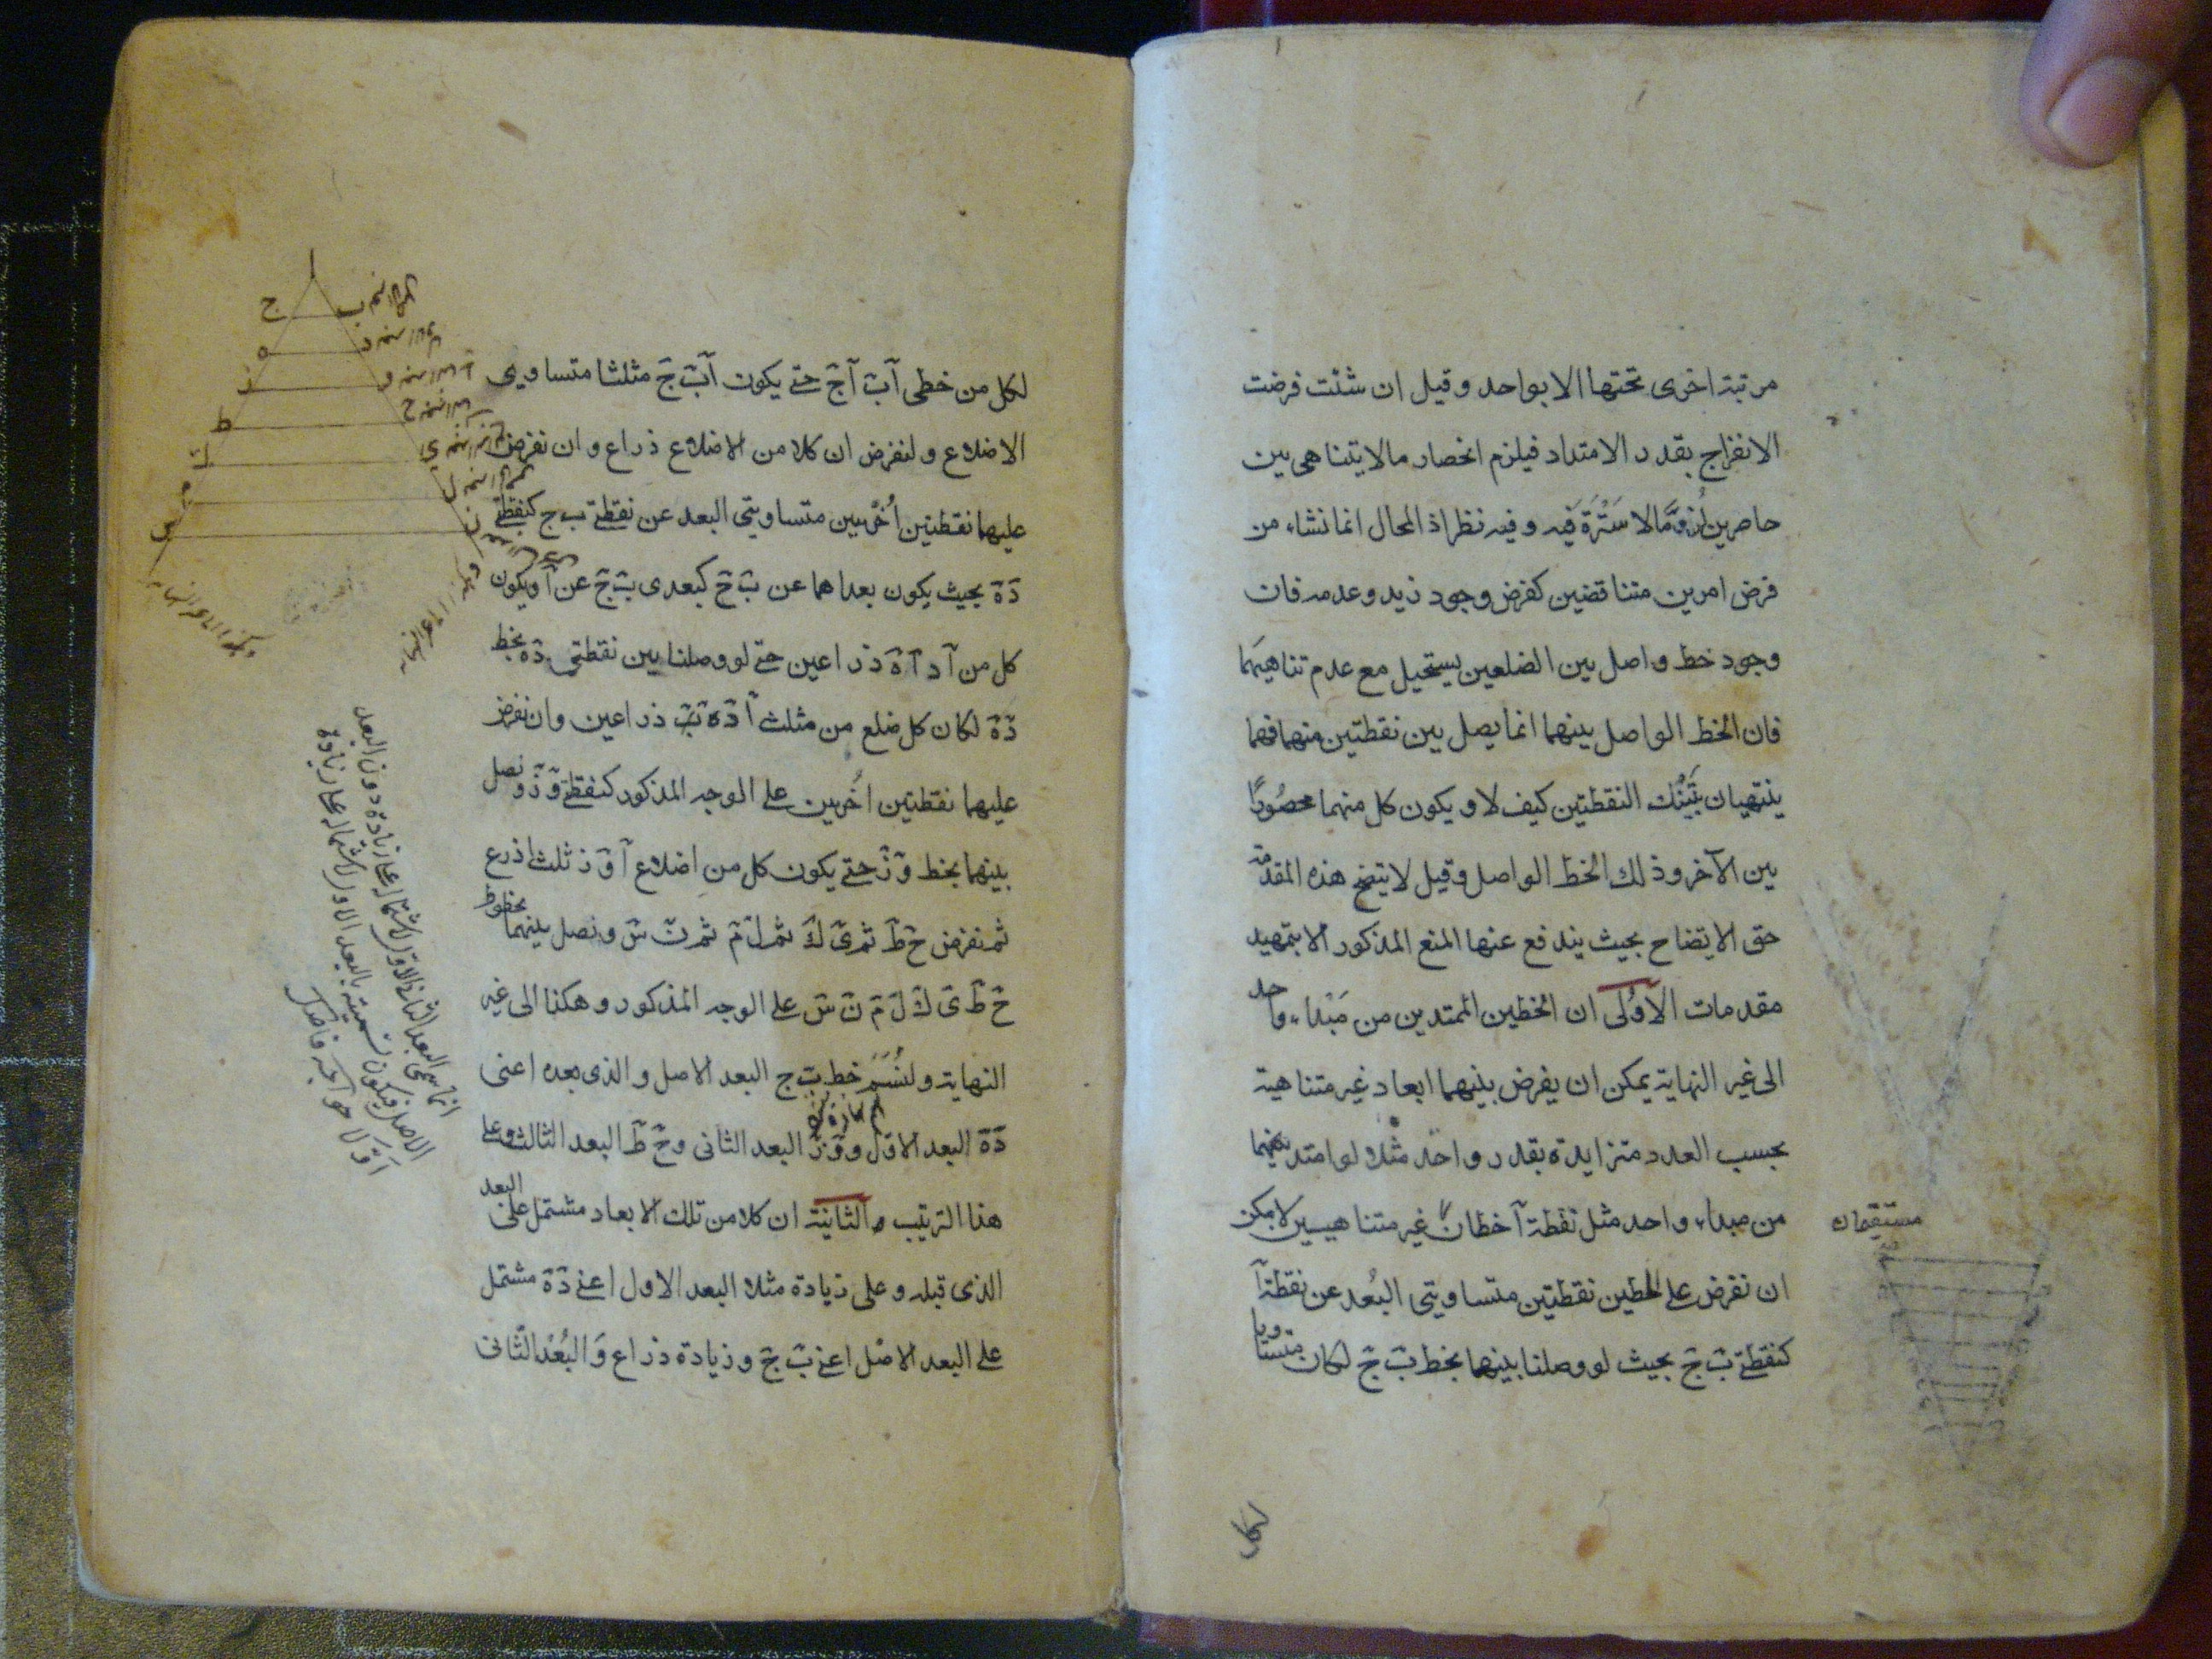 مرتبة اخرى تحتها الا بواحد وقيل ان شئت فرضت
الانفراج بقدر الامتداد فيلزم انحصار مالا يتناهى بين
حاصرين لزوما لا سترة فيه وفيه نظر اذ المحال انما نشاء من
فرض امرين متناقضين كفرض وجود زيد وعدمه فان
وجود خط واصل بين الضلعين يستحيل مع عدم تناهيهما
فان الخط الواصل بينهما انما يصل بين نقطتين منهما فهما
ينتهيان بتينك النقطتين كيف لا ويكون كل منهما محصورا
بين الآخر وذلك الخط الواصل وقيل لا يتضح هذه المقدمة
حق الايتضاح بحيث يندفع عنها المنع المذكور الا بتمهيد
مقدمات الاولى ان الخطين الممتدين من مبداء واحد
الى غير النهاية يمكن ان يفرض بينهما ابعاد غير متناهية
بحسب العدد متزايدة بقدر واحد مثلا لو امتد
من مبداء واحد مثل نقطة آ خطان غير متناهيين لامكن
مستقيمان
ان نفرض على الخطين نقطتين متساويتى البعد عن نقطة آ
كنقطتى ب ج بحيث لو وصلنا بينهما بخط ب ج لكان متساويا
لكل
لكل من خطى آب آج حتى يكون آب ج مثلثا متساوى
الاضلاع ولنفرض ان كلا من الاضلاع ذراع وان نفرض
عليهما نقطتين اخريين متساويتى البعد عن نقطتى ب ج كنقطتى
د ه بحيث يكون بعداهما عن ب ج كبعدى ب ج عن آ ويكون
كل من آد آه ذراعين حتى لو وصلنا بين نقطتى د ه بخط
د ه لكان كل ضلع من مثلث آ د ه ذراعين وان نفرض
عليهما نقطتين اخريين على الوجه المذكور كنقطتى و ز ونصل
بينهما بخط و ز حتى يكون كل من اضلاع آ و ز ثلث اذرع
ثم نفرض ح ط ثم ى ك ثم ل م ثم ن س ونصل بينهما بخطوط
ح ط ى ك ل م ن س على الوجه المذكور وهكذا الى غير
النهاية ولنسم خط ب ج البعد الاصل والذى بعده اعنى
د ه البعد الاول و و ز البعد الثانى و ح ط البعد الثالث وعلى
هذا الترتيب والثانية ان كلا من تلك الابعاد مشتمل على البعد
الذى قبله وعلى زيادة مثلا البعد الاول اعنى د ه مشتمل
على البعد الاصل اعنى ب ج وزيادة ذراع والبعد الثانى
ا
ج ب
ه د
ز و
ط ح
ك ى
ل
س ن
انما سمى البعد الثانى بالاول لاشتماله على زيادة دون البعد
الاصل